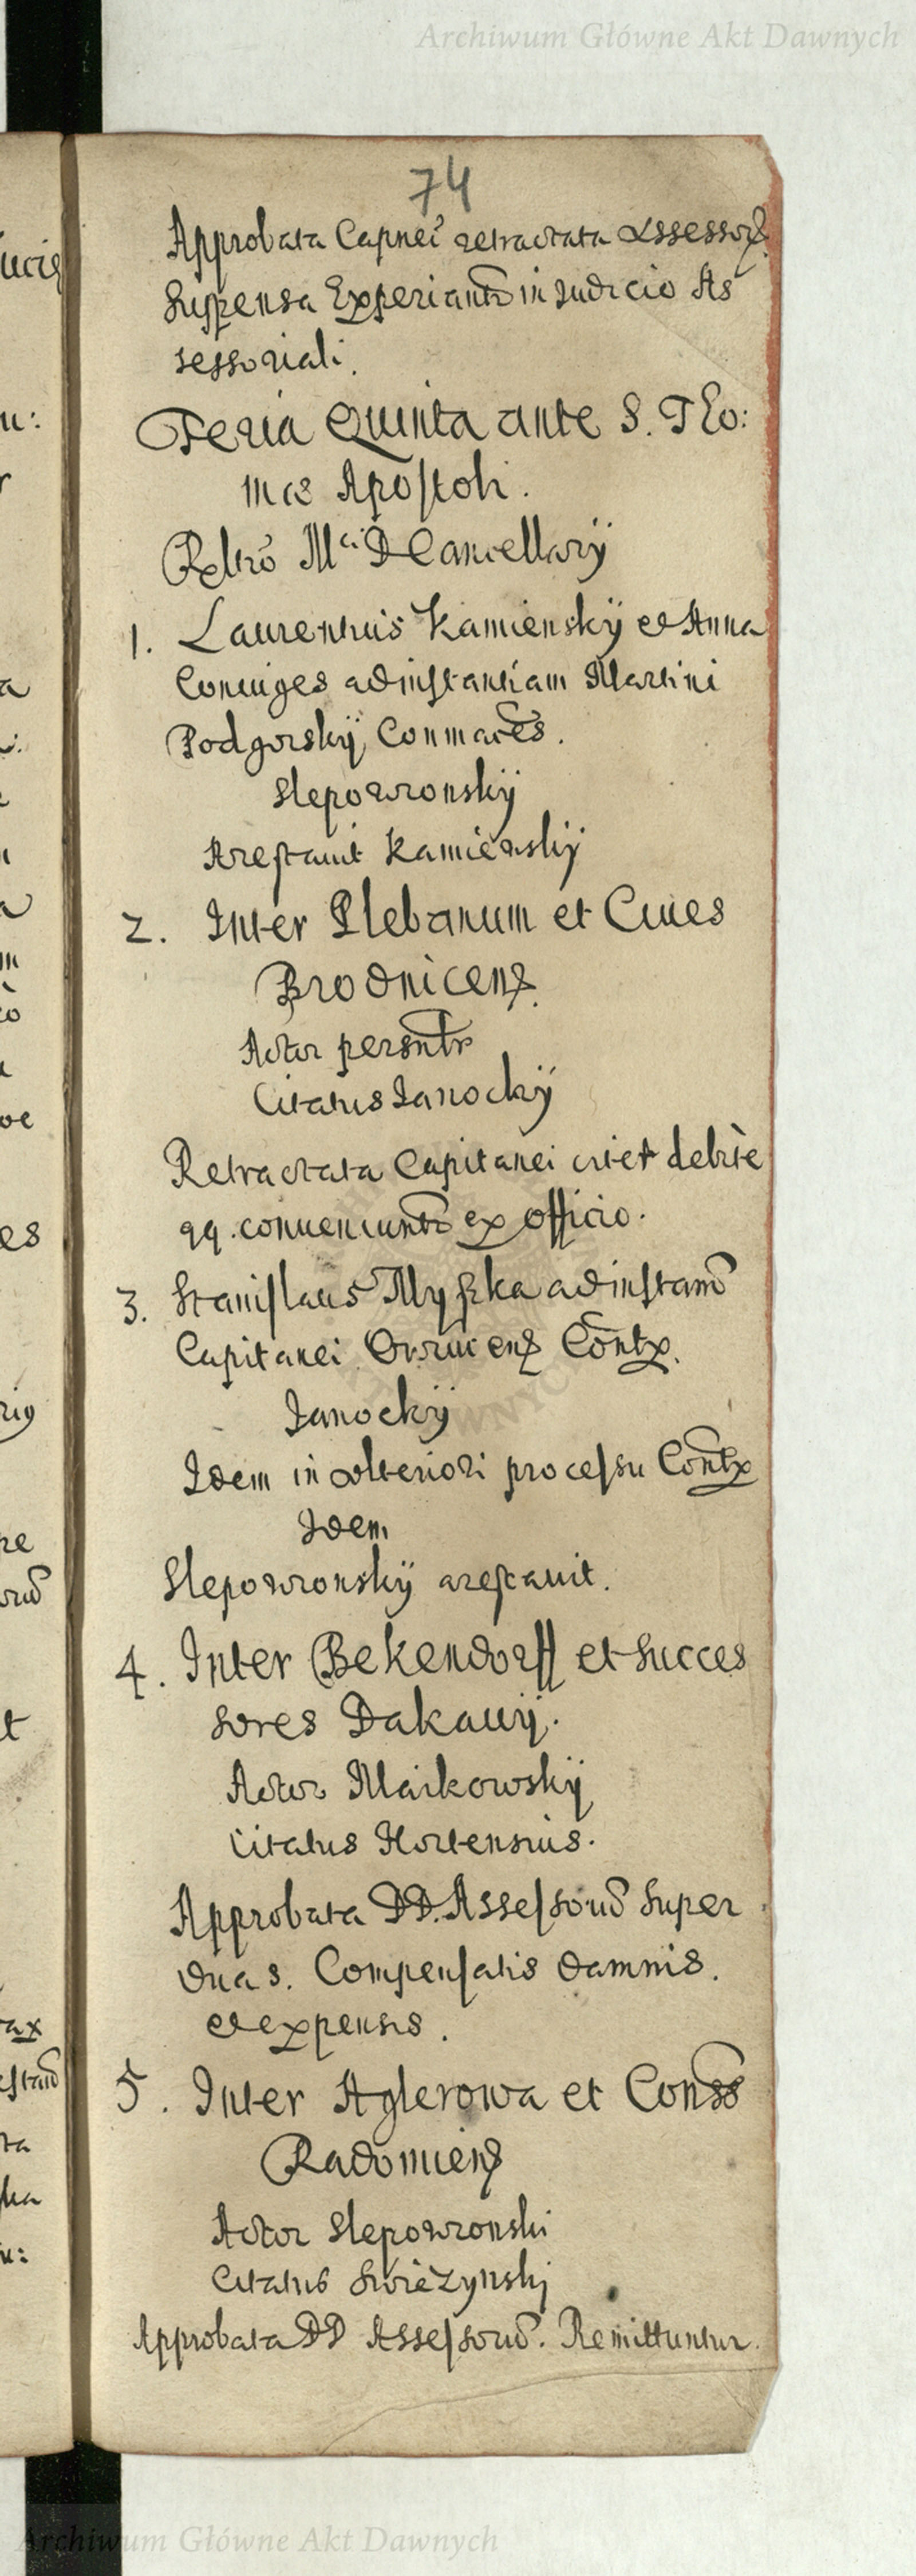 Archiwum Główne Akt Dawnych
74
Approbata Capnei retractata Assessor
suspensa Experiant in Judicio As
sessoriali.
Feria Quinta ante S. Tho:
mae Apostoli.
Mci D Cancellarÿ
1. Laurentius Kamienskÿ et Anna
Coniuges ad instantiam Martini
Podgorskÿ Conmaces.
Slepowronskÿ
Arestauit Kamienskÿ
2. Inter Plebanum et Ciues
Brodnicens.
Actor persntr
Citatus Janockÿ
Retractata Capitanei citet debite
qq. conueniunt ex officio.
3. Stanislaus Myszka ad instam
Capitanei Contx.
Janockÿ
Idem in vlteriori processu Contx
Idem
Slepowronskÿ arestauit.
4. Inter Bekendorff et Succes
sores Dakauÿ.
Actor Maikowskÿ
Citatus Hortensius.
Approbata DD. Assessoru Super
duas. Compensatis damnis.
et expensis.
5. Inter Aglerowa et Conss
Radomiens
Actor Slepowronski
Citatus Swiezynskj
Approbata DD Assessoru. Remittuntur.
Archiwum Główne Akt Dawnych